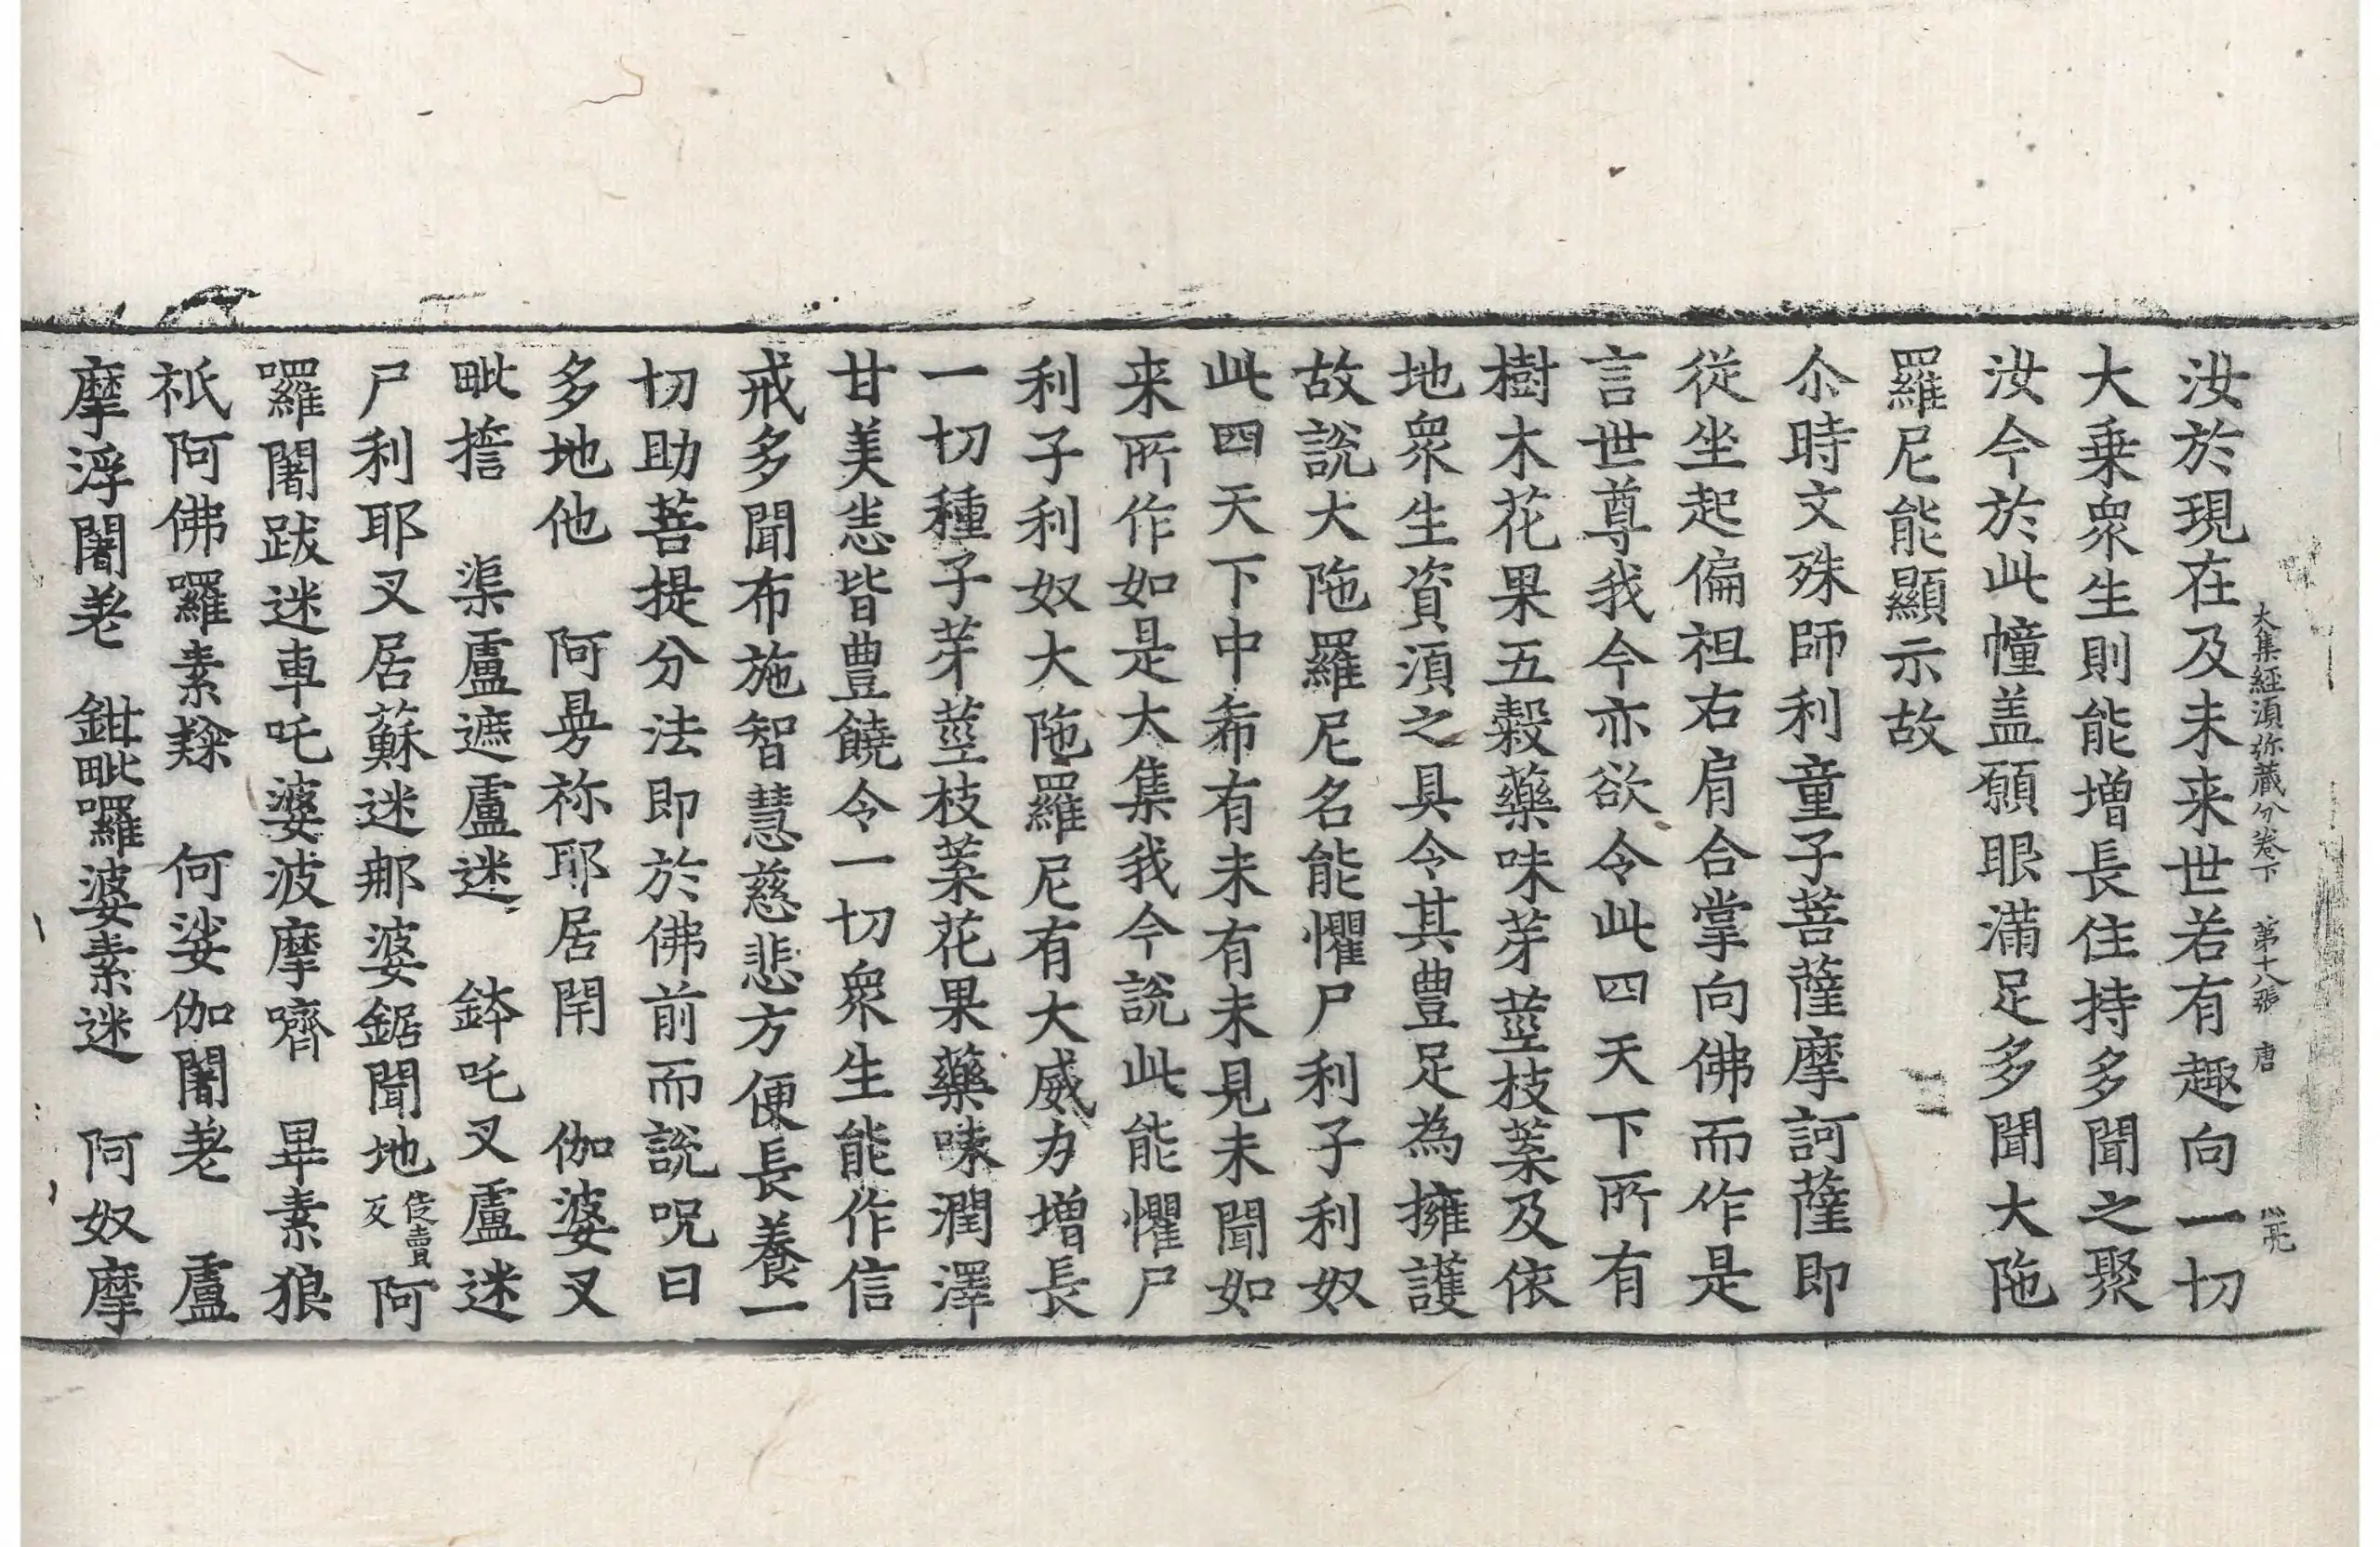 大集經湏弥藏分卷下 第十八張 唐
汝於現在及未来世若有趣向一切
大乗衆生則能增長住持多聞之聚
汝今於此幢盖願眼滿足多聞大陁
羅尼能顯示故
尒時文殊師利童子菩薩摩訶薩即
從坐起偏袒右肩合掌向佛而作是
言世尊我今亦欲令此四天下所有
樹木花果五穀藥味芽莖枝葉及依
地衆生資湏之具令其豊足為擁護
故說大陁羅尼名能懼尸利子利奴
此四天下中希有未有未見未聞如
来所作如是大集我今說此能懼尸
利子利奴大陁羅尼有大威力增長
一切種子芽莖枝葉花果藥味潤澤
甘美恙皆豊饒令一切衆生能作信
戒多聞布施智慧慈悲方便長養一
切助菩提分法即於佛前而說呪曰
多地他 阿㝵祢耶居閇 伽婆叉
毗㨋 渠盧遮盧迷 鉢吒叉盧迷
尸利耶叉居蘇迷𨚗婆鋸聞地 徒賣反 阿
囉闍跋迷車吒婆波摩嚌 畢素狼
祇阿佛囉素㸼 何娑伽闍荖 盧
摩浮闍荖 鉗毗囉婆素迷 阿奴摩